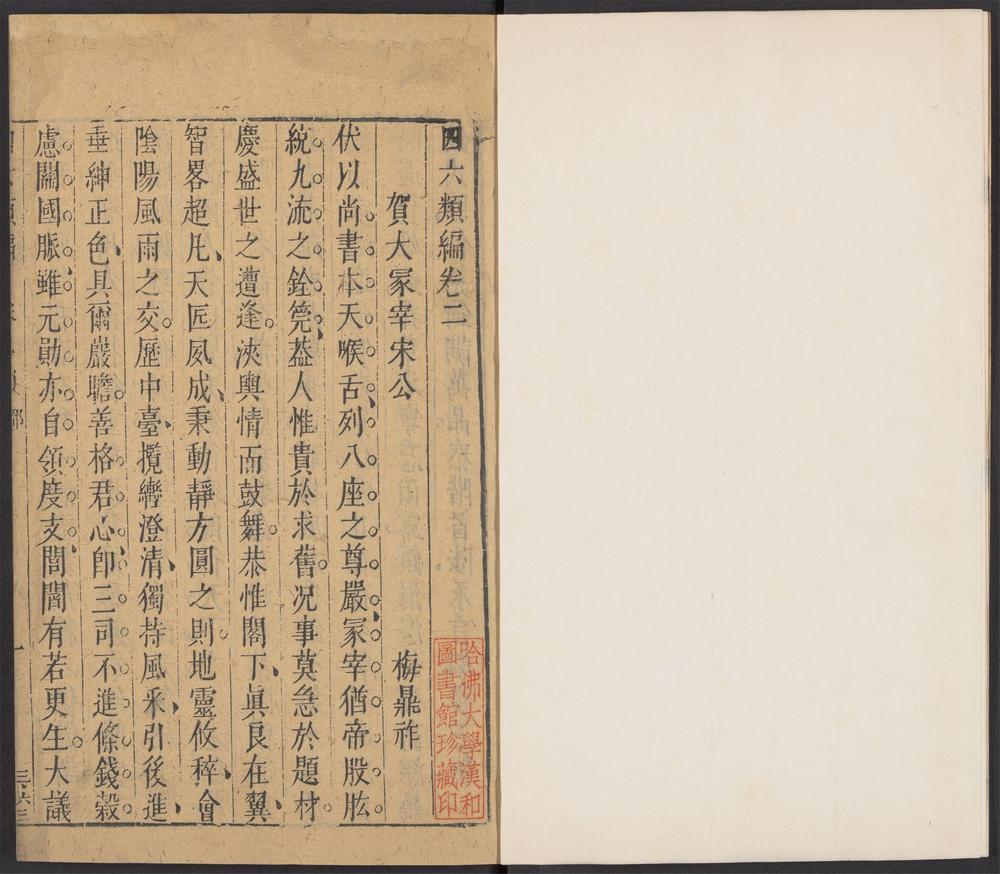 四六類編卷二
賀大冢宰宋公
梅鼎祚
伏以尚書本天喉舌列八座之尊嚴冢宰猶帝股肱
統九流之銓筦葢人惟貴於求舊况事莫急於題材
慶盛世之遭逢浹輿情而鼓舞恭惟閣下眞良在翼
智畧超凡天匠夙成秉動靜方圓之則地靈攸稡會
陰陽風雨之交歷中臺攬轡澄清獨持風釆引後進
垂紳正色具爾嚴瞻善格君心卽三司不進條錢榖
慮關國脈雖元勛亦自領度支誾誾有若更生大議
哈佛大學漢和
圖書館珍藏印